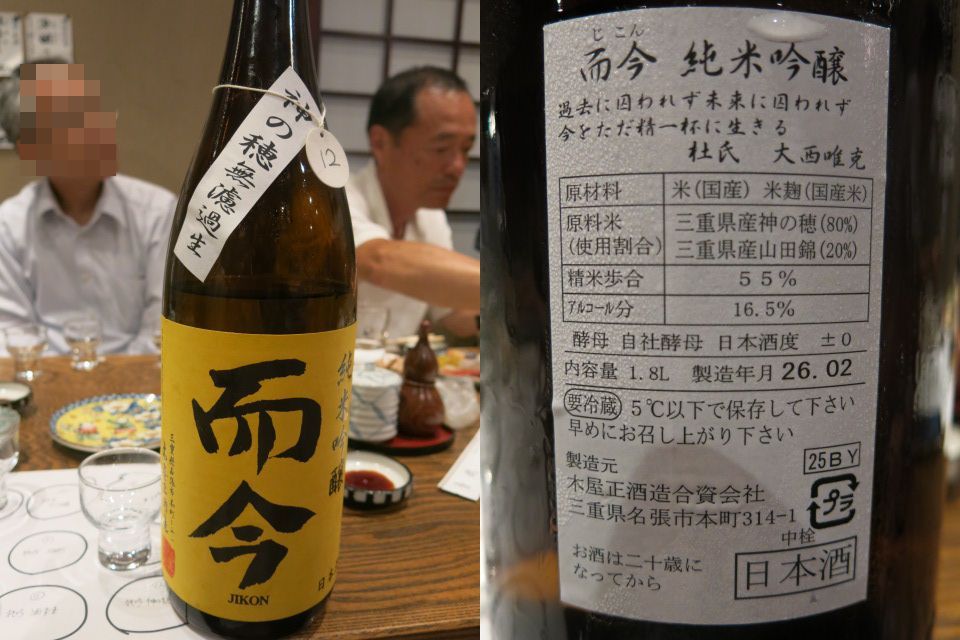 神の穂無濾過生
12
純米吟醸
而今
JIKON
じこん
而今 純米吟醸
過去に囚われず未来に囚われず
今をただ精一杯に生きる
杜氏 大西唯克
原材料 米(国産) 米麹(国産米)
原料米 三重県産神の穂(80%)
(使用割合) 三重県産山田錦(20%)
精米歩合 55%
アルコール分 16.5%
酵母 自社酵母 日本酒度 ±0
内容量 1.8L 製造年月 26.02
要冷蔵 5℃以下で保存して下さい
早めにお召し上がり下さい
25BY
製造元
木屋正酒造合資会社
三重県名張市本町314-1
プラ
中栓
お酒は二十歳に
なってから
日本酒